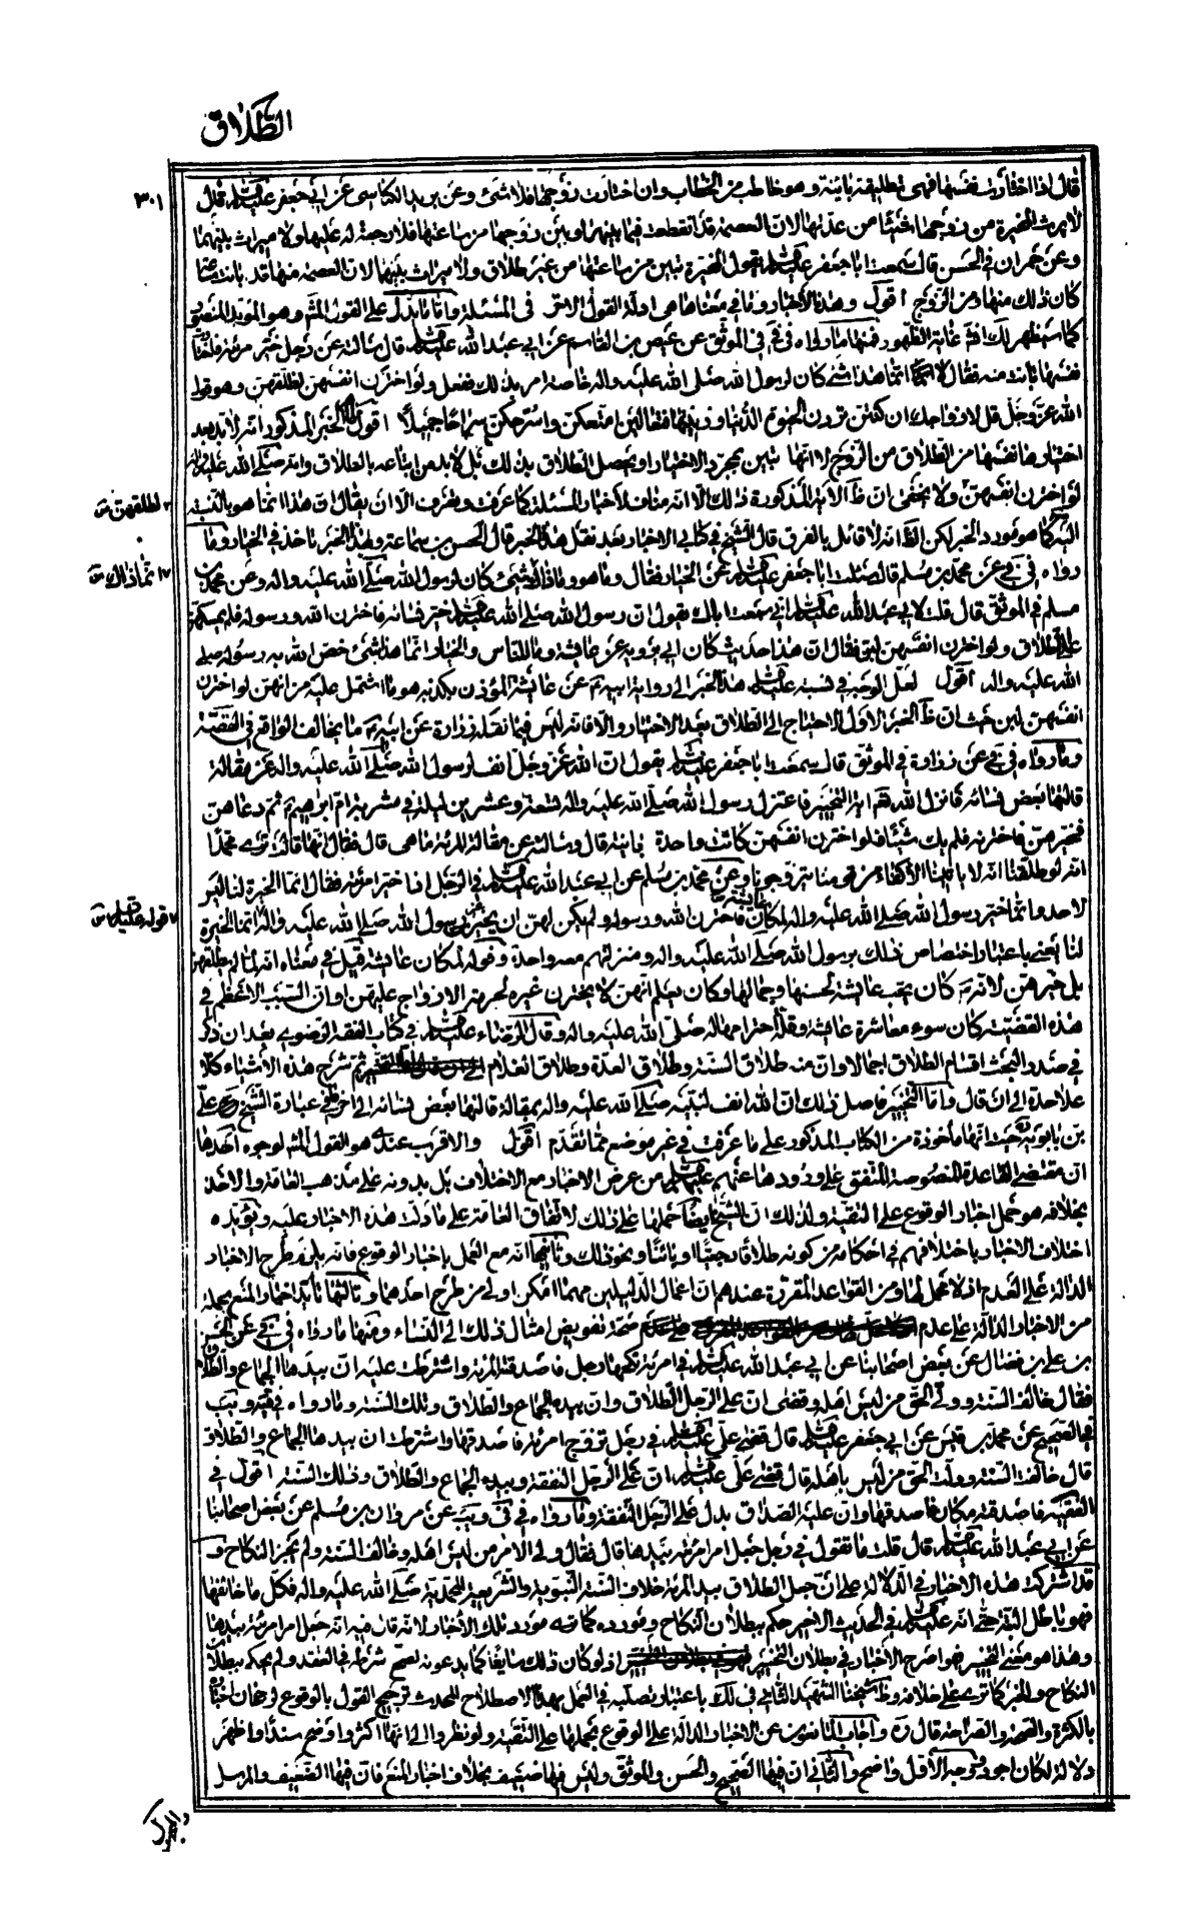 الطلاق
٣٠١
قال اذا اختارت نفسها فهي تطليقة بائنة وهو خاطب من الخطاب وان اختارت زوجها فلا شئ وعن يزيد الكناسي عن ابي جعفر عليه السلام قال
لا يرث المخيرة من زوجها شيئا من عدتها لان العصمة قد انقطعت فيما بينها وبين زوجها من ساعتها فلا رجعة له عليها ولا ميراث بينهما
وعن حمران في الحسن قال سمعت ابا جعفر عليه السلام يقول المخيرة تبين من ساعتها من غير طلاق ولا ميراث بينهما لان العصمة منها قد بانت ساعة
كان ذلك منها ومن الزوج اقول وهذه الاخبار وما في معناها هي ادلة القول الاخر في المسئلة واما ما يدل على القول المش وهو المؤيد المنصور
كما سيظهر لك غاية الظهور فمنها ما رواه في في الموثق عن عيص بن القاسم عن ابي عبد الله عليه السلام قال سالته عن رجل خير امرئته فاختارت
نفسها بانت منه فقال لا انما هذا شئ كان لرسول الله صلى الله عليه واله خاصة امر بذلك ففعل ولو اخترن انفسهن لطلقهن وهو قول
الله عز وجل قل لازواجك ان كنتن تردن الحيوة الدنيا وزينتها فتعالين امتعكن واسرحكن سراحا جميلا اقول الخبر المذكور انه لا بد بعد
اختيارها نفسها من الطلاق من الزوج لا انها تبين بمجرد الاختيار او يحصل الطلاق بذلك بل لا بد من ايقاعه بالطلاق وانه صلى الله عليه واله
لو اخترن انفسهن ولا يخفى ان ظ الاية المذكورة ذلك الا انه مناف لاخبار المسئلة كما عرفت وتعرف الا ان يقال ان هذا انما هو بالنسبة
لطلقهن
اليه كما هو مورد الخبر لكن الظ انه لا قائل بالفرق قال الشيخ في كتابي الاخبار بعد نقل هذا الخبر قال الحسن بن سماعة وبهذا الخبر ناخذ في الخيار وما
رواه في عن محمد بن مسلم قال سئلت ابا جعفر عليه السلام عن الخيار فقال وما هو وما ذاك شئ كان لرسول الله صلى الله عليه واله وعن محمد بن
انما ذاك
مسلم في الموثق قال قلت لابي عبد الله عليه السلام اني سمعت اباك يقول ان رسول الله صلى الله عليه واله خير نسائه فاخترن الله ورسوله فلم يمسكهن
على طلاق ولو اخترن انفسهن لبن فقال ان هذا حديث كان ابي يرويه عن عايشة وما للناس والخيار انما هذا شئ خص الله به رسوله صلى
الله عليه واله اقول لعل الوجه في نسبة عليه السلام هذا الخبر الى رواية ابيه عن عائشة المؤذن بكذبه هو ما اشتمل عليه من انهن لو اخترن
انفسهن لبن حيث ان ظ الخبر الاول الاحتياج الى الطلاق بعد الاختيار والا فانه ليس فيما نقله زرارة عن ابيه ما يخالف الواقع في القضية
وما رواه في عن زرارة في الموثق قال سمعت ابا جعفر عليه السلام يقول ان الله عز وجل انف لرسول الله صلى الله عليه واله عن مقالة
قالتها بعض نسائه فانزل الله اية التخيير فاعتزل رسول الله صلى الله عليه واله تسعة وعشرين ليلة في مشربة ام ابراهيم ثم دعاهن
فخيرهن فاخترنه فلم يك شيئا فلو اخترن انفسهن كانت واحدة بائنة قال وسالته عن مقالة المرئة ما هي قال فقال انها قالت يرى محمد
انه لو طلقنا انه لا ياتينا الاكفاء من قومنا يتزوجونا وعن محمد بن مسلم عن ابي عبد الله عليه السلام في الرجل اذا خير امرئته فقال انما الخيرة لنا ليس
لاحد وانما خير رسول الله صلى الله عليه واله لمكان عايشة فاخترن الله ورسوله ولم يكن لهن ان يخترن غير رسول الله صلى الله عليه واله انما الخيرة
لنا يعني باعتبار اختصاص ذلك برسول الله صلى الله عليه واله ومنزلتهم معه واحدة وقوله لمكان عايشة قيل في معناه انه لما لم يطلقهن
بل خيرهن لانه كان يحب عايشة لحسنها وجمالها وكان يعلم انهن لا يخترن غيره لحرمة الازواج عليهن او ان السبب الاعظم في
هذه القضية كان سوء معاشرة عايشة وقلة احترامها له صلى الله عليه واله وقال الرضا عليه السلام في كتاب الفقه الرضوي بعد ان ذكر
في صدر البحث اقسام الطلاق اجمالا وان منه طلاق السنة وطلاق العدة وطلاق الغلام ثم شرح هذه الاشياء كلا
على حدة الى ان قال واما التخيير فاصل ذلك ان الله انف لنبيه صلى الله عليه واله بمقالة قالتها بعض نسائه الى اخر عبارة الشيخ علي
بن بابويه حيث انها مأخوذة من الكتاب المذكور على ما عرفت في غير موضع مما تقدم اقول والاقرب عندي هو القول المش لوجوه احدها
ان مقتضى القاعدة المنصوصة المتفق على ورودها عنهم عليهم السلام من عرض الاخبار مع الاختلاف بل بدونه على مذهب العامة والاخذ
بخلافه هو حمل اخبار الوقوع على التقية ولذلك ان الشيخ ايضا حملها على ذلك لاتفاق العامة على ما دلت هذه الاخبار عليه ويؤيده
اختلاف الاخبار باختلافهم في احكامه من كونه طلاقا رجعيا او بائنا ونحو ذلك وثانيها انه مع العمل باخبار الوقوع فانه يلزم طرح الاخبار
الدالة على العدم اذ لا محمل لها ومن القواعد المقررة عندهم ان اعمال الدليلين مهما امكن اولى من طرح احدهما وثالثها تأيد اخبار المنع بجملة
من الاخبار الدالة على عدم صحة تفويض امثال ذلك الى النساء ومنها ما رواه في عن الحسن
بن علي بن فضال عن بعض اصحابنا عن ابي عبد الله عليه السلام في امرئة نكحها رجل فاصدقته المرئة واشترطت عليه ان بيدها الجماع والطلاق
فقال خالف السنة وولى الحق من ليس اهله وقضى ان على الرجل الطلاق وان بيده الجماع والطلاق وتلك السنة وما رواه في
في الصحيح عن محمد بن قيس عن ابي جعفر عليه السلام قال قضى علي عليه السلام في رجل تزوج امرئة فاصدقها واشترطت ان بيدها الجماع والطلاق
قال خالفت السنة وولت الحق من ليس باهله قال قضى علي عليه السلام ان على الرجل النفقة وبيده الجماع والطلاق وذلك السنة اقول في
الفقيه فاصدقته مكان فاصدقها وان عليه الصداق بدل على الرجل النفقة وما رواه في عن مروان بن مسلم عن بعض اصحابنا
عن ابي عبد الله عليه السلام قال قلت ما تقول في رجل جعل امر امرئته بيدها قال فقال ولى الامر من ليس اهله وخالف السنة ولم يجز النكاح و
قد اشتركت هذه الاخبار في الدلالة على ان جعل الطلاق بيد المرئة خلاف السنة النبوية والشريعة المحمدية صلى الله عليه واله فكل ما خالفها
فهو باطل البتة حتى انه عليه السلام في الحديث الاخير حكم ببطلان النكاح ومورده كما ترى مورد تلك الاخبار لانه قال فيه انه جعل امر امرئته بيدها
وهذا هو معنى التخيير فهو اصرح الاخبار في بطلان التخيير اذ لو كان ذلك سايغا كما يدعونه لصح شرطه في العقد ولم يحكم ببطلان
النكاح والخبر كما ترى على خلافه وظ شيخنا الشهيد الثاني في لك باعتبار تصلبه في العمل بهذا الاصطلاح المحدث ترجيح القول بالوقوع لرجحان اخباره
بالكثرة والصحة والصراحة قال واجاب المانعون عن الاخبار الدالة على الوقوع بحملها على التقية ولو نظروا الى انها اكثر واوضح سندا واظهر
دلالة لكان اجود ووجه الاول واضح والثاني ان فيها الصحيح والحسن والموثق وليس فيها ضعيف بخلاف اخبار المنع فان فيها الضعيف والمرسل